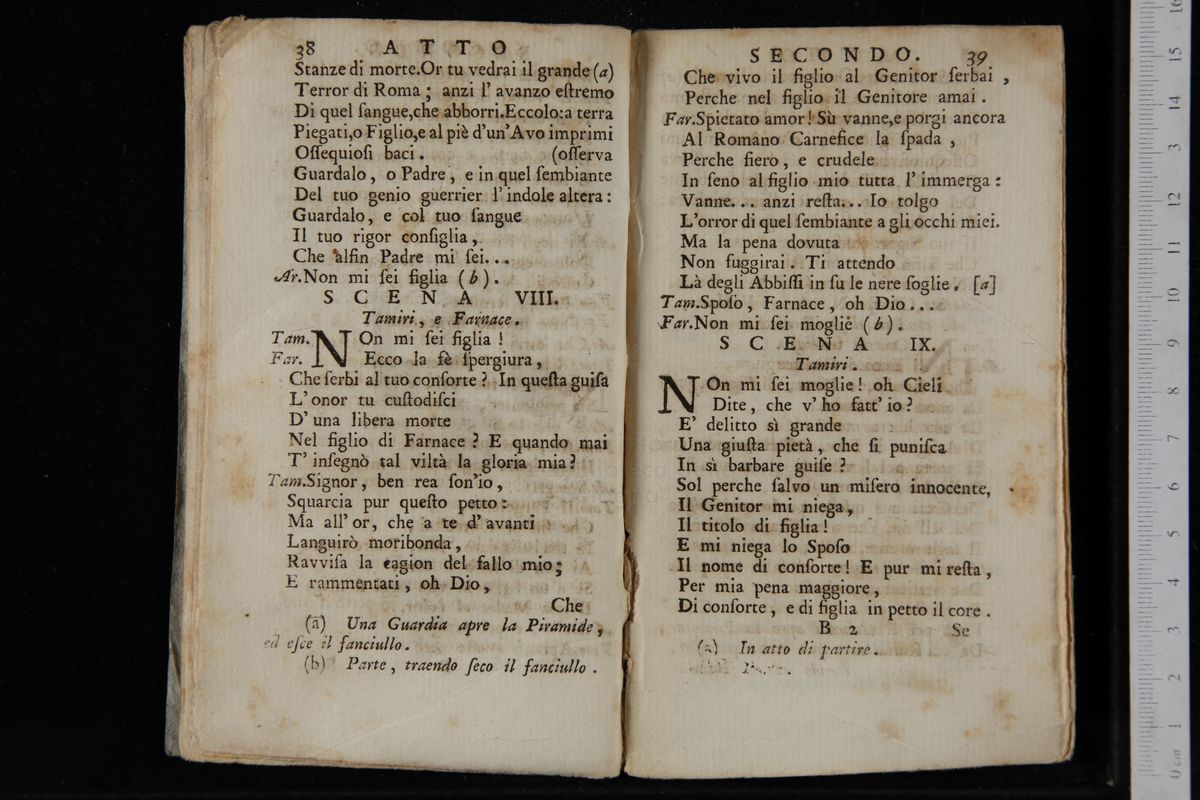 38 ATTO
Stanze di morte.Or tu vedrai il grande (a)
Terror di Roma; anzi l' avanzo eſtremo
Di quel ſangue,che abborri.Eccolo:a terra
Piegati,o Figlio,e al piè d'un'Avo imprimi
Oſſequioſi baci. (oſſerva
Guardalo, o Padre, e in quel ſembiante
Del tuo genio guerrier l'indole altera:
Guardalo, e col tuo ſangue
Il tuo rigor conſiglia,
Che alfin Padre mi ſei...
Ar.Non mi ſei figlia (b).
SCENA VIII.
Tamiri, e Farnace.
Tam. NOn mi ſei figlia!
Far. Ecco la fè ſpergiura,
Che ſerbi al tuo conſorte? In queſta guiſa
L'onor tu cuſtodiſci
D'una libera morte
Nel figlio di Farnace? E quando mai
T' inſegnò tal viltà la gloria mia?
Tam.Signor, ben rea ſon'io,
Squarcia pur queſto petto:
Ma all'or, che a te d'avanti
Languirò moribonda,
Ravviſa la cagion del fallo mio;
E rammentati, oh Dio,
Che
(a) Una Guardia apre la Piramide,
ed eſce il fanciullo.
(b) Parte, traendo ſeco il fanciullo.
SECONDO. 39
Che vivo il figlio al Genitor ſerbai,
Perche nel figlio il Genitore amai.
Far.Spietato amor! Sù vanne,e porgi ancora
Al Romano Carnefice la ſpada,
Perche fiero, e crudele
In ſeno al figlio mio tutta l'immerga:
Vanne... anzi reſta... Io tolgo
L'orror di quel ſembiante a gli occhi miei.
Ma la pena dovuta
Non fuggirai. Ti attendo
Là degli Abbiſſi in ſu le nere ſoglie. [a]
Tam.Spoſo, Farnace, oh Dio...
Far.Non mi ſei moglie (b).
SCENA IX.
Tamiri.
NOn mi ſei moglie! oh Cieli
Dite, che v'ho fatt'io?
E' delitto sì grande
Una giuſta pietà, che ſi puniſca
In sì barbare guiſe?
Sol perche ſalvo un miſero innocente,
Il Genitor mi niega,
Il titolo di figlia!
E mi niega lo Spoſo
Il nome di conſorte! E pur mi reſta,
Per mia pena maggiore,
Di conſorte, e di figlia in petto il core.
B 2 Se
(a) In atto di partire.